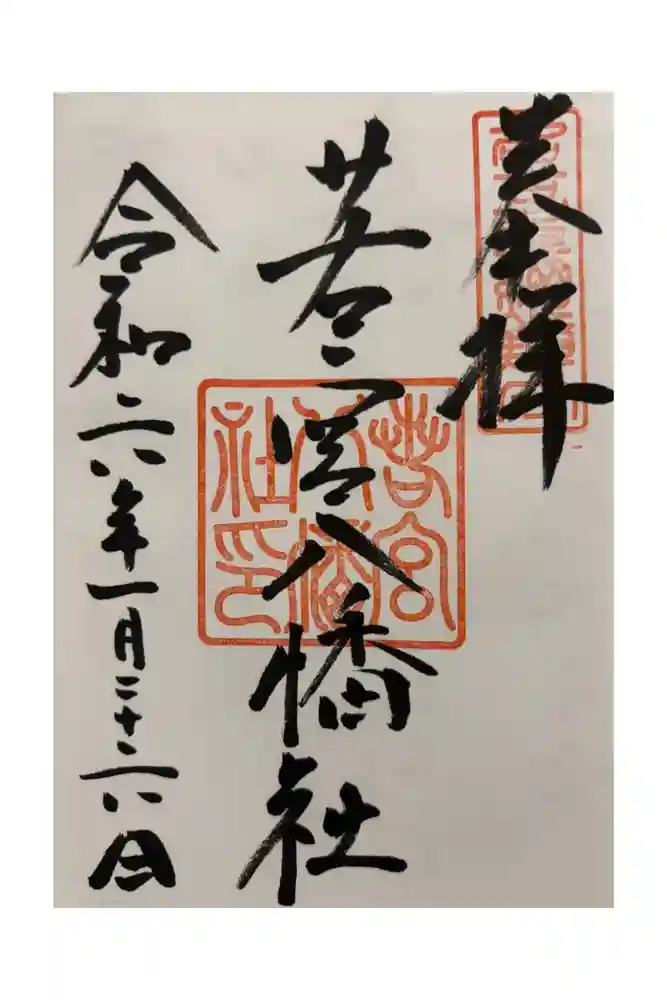 奉拝
若宮八幡社
令和六年一月二十六日
若宮
八幡
社印